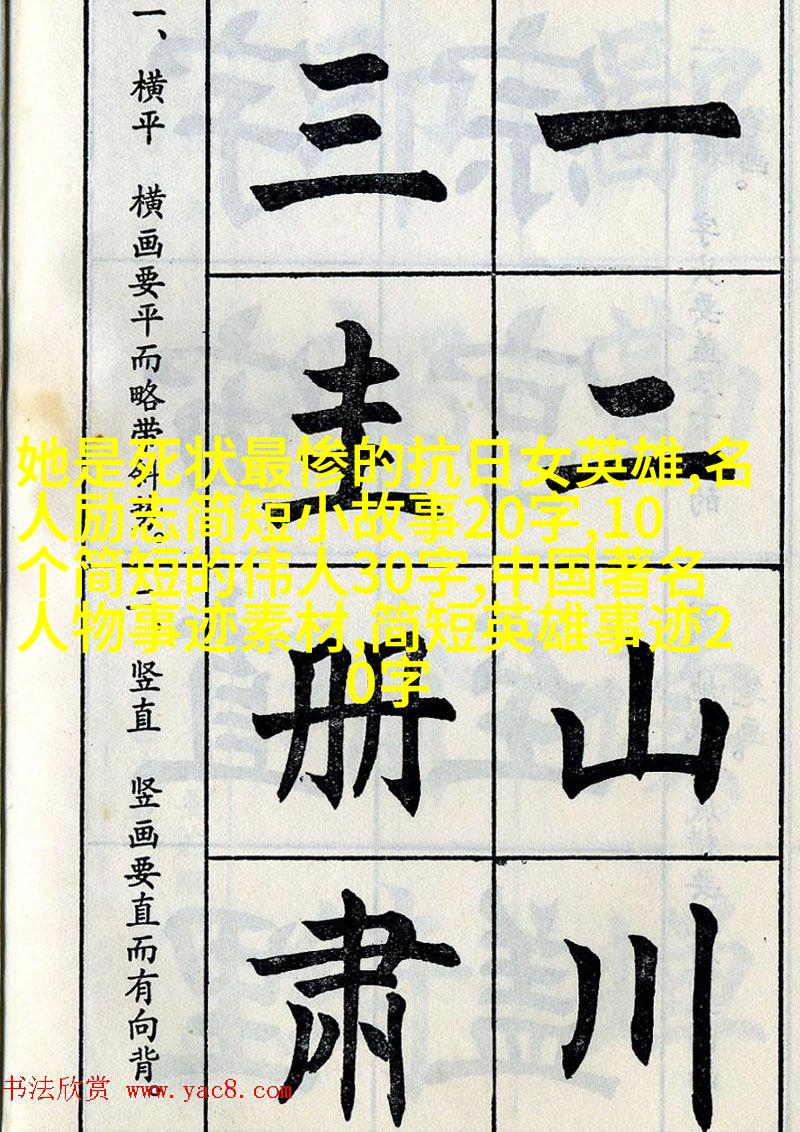 她是死状最惨的抗日女英雄,名
人励志简短小故事20字,10
个简短的伟人30字,中国著名
人物事迹素材,简短英雄事迹2
0字
一二山川
三圭册肃
一、横平 横画要平而略带斜势。
二、竖直 竖画要直而有向背。
书法欣赏 www.yac8.com